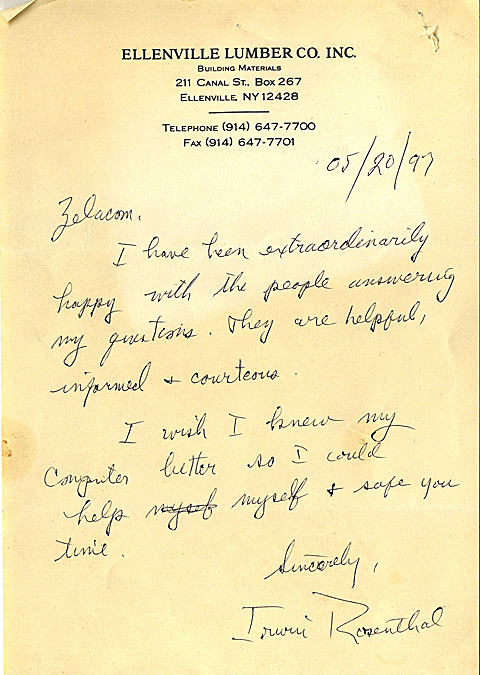 ELLENVILLE LUMBER CO. INC.
BUILDING MATERIALS
211 CANAL ST., BOX 267
ELLENVILLE, NY 12428
TELEPHONE (914) 647-7700
FAX (914) 647-7701
05/20/97
Zelacom.
I have been extraordinarily
happy with the people answering
my questions. They are helpful,
informed + courteous.
I wish I knew my
Computer better so I could
help myself myself + safe you
time.
Sincerely,
Irwin Rosenthal